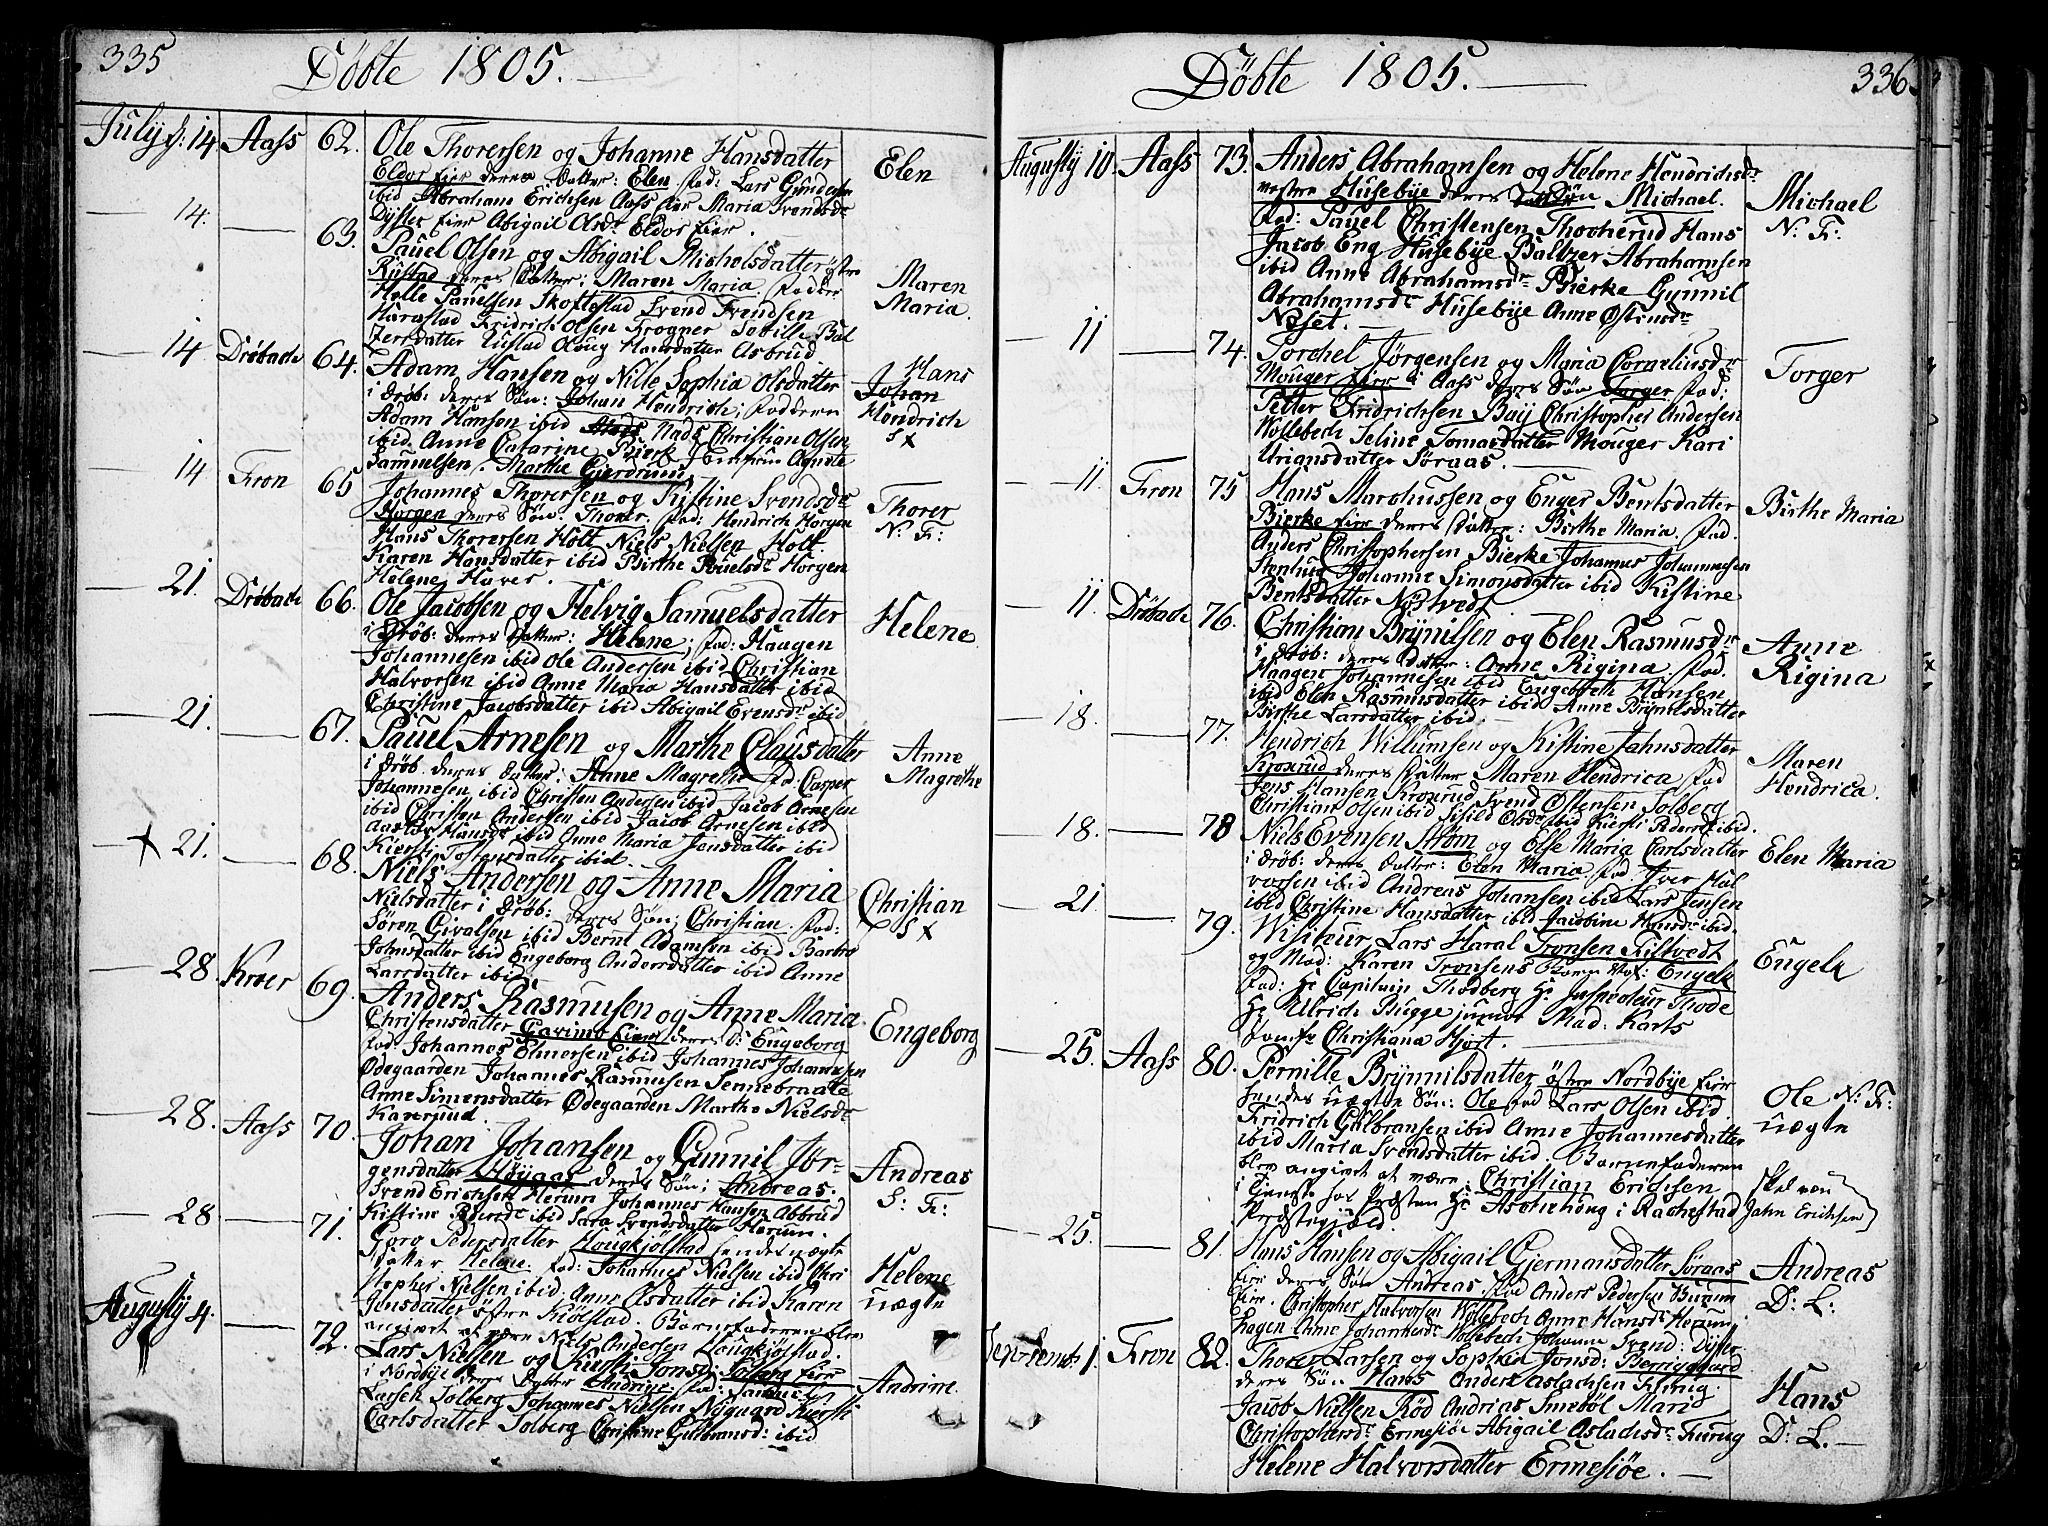 335
Döbte 1805.
July d: 14. Aass 62. Ole Thorersen og Johanne Hansdatter
Eldor Eier deres Datter: Elen, fad: Lars
ibid Abraham Erichsen Aass Eier Maria Svendsdr
Dyster Eier Abigail Olsdr Eldor Eier.
Elen
14. 63. Pauel Olsen og Abigail Micholsdatter östre
Rustad deres Datter: Maren Maria. Faddere
Helle Pauelsen Skoftestad Svend Svendsen
Harestad Fridrich Olsen Frogner
datter Rustad Oloug Hansdatter Asbrud
Maren
Maria.
14 Dröbach 64. Adam Hansen og Nille Sophia Olsdatter
i Dröb: deres Sön: Johan Hendrich; Faddere
Adam Hansen ibid Mads Christian Olsen
ibid. Anne Catarine Bierk Jomfru Agnete
Samuelsen. Marthe Gjerdrums
Hans
Johan
Hendrich
S x
14 Fron 65 Johannes Thorersen og Kistine Svendsdr
Horgen deres Sön: Thorer. fad: Hendrich Horgen
Hans Thorersen Holt Niels Nielsen Holt.
Karen Hansdatter ibid Birthe Pauelsdr Horgen
Helene Haver.
Thorer
N: F:
21. Dröbach 66. Ole Jacobsen og Helvig Samuelsdatter
i Dröb: deres Datter: Helene; fad: Haagen
Johannesen ibid Ole Andersen ibid Christian
Halvorsen ibid Anne Maria Hansdatter ibid
Christine Jacobsdatter ibid Abigail Evensdr ibid
Helene
21. 67. Pauel Arnesen og Marthe Clausdatter
i Dröb: deres Datter: Anne Magrethe fad: Casper
Johannesen ibid Christen Andersen ibid Jacob Arnesen
ibid Christen Andersen ibid Jacob Arnesen ibid
Hansdr ibid Anne Maria Jensdatter ibid
Kiersti Tostensdatter ibid.
Anne
Magrethe
x 21. 68. Niels Andersen og Anne Maria
Nielsdatter i Dröb: deres Sön; Christian. fad:
Sören Givalsen ibid Bernt Adamsen ibid Barbro
Johnsdatter ibid Engeborg Andersdatter ibid Anne
Larsdatter ibid
Christian
S x
28. Kroer 69. Anders Rasmusen og Anne Maria
Christensdatter Eier deres D: Engeborg
fad Johannes Elmersen ibid Johannes Johannesen
Ödegaarden Johannes Rasmusen Sennebraate
Anne Simensdatter Ödegaarden Marthe Nielsdr
Kaxerud.
Engeborg
28. Aass 70. Johan Johansen og Gunnil Jör-
gensdatter Höygaas deres Sön; Andreas.
Svend Erichsen Herum Johannes Hansen Abbrud
Kistine ibid Sara Svendsdatter Herum.
Andreas
S: F:
28 71. Goro Pedersdatter Hougkjölstad hendes uægte
Datter Helene. fad: Johannes Nielsen ibid Chri
stopher Nielsen ibid. Anne Olsdatter ibid Karen
Jensdatter östre Kiölstad. Barnefaderen blev
angivet at være Niels Andersen Hougkjölstad.
Helene
uægte
Augusty 4. 72. Lars Nielsen og Kiersti Jonsdr Solberg Eier
i Nordbye deres Datter Andrine fad: Samuel
Larsen Solberg Johannes Nielsen Nyguard Kiersti
Carlsdatter Solberg Christine Gulbransd: ibid
Andrine.
336
Döbte 1805.
Augusty 10. Aass 73. Anders Abrahamsen og Helene Hendrichsdr
vestre Husebye deres Sön Michael.
Fad: Pauel Christensen Thocherud Hans
Jacob Eng Husebye Baltzer Abrahamsen
ibid Anne Abrahamsdr Bierke Gunnil
Abrahamsdr Husebye Anne Östensdr
Neset.
Michael
N: F:
11 74. Torchel Jörgensen og Maria Corneliusdr
Mouger Eier i Aass deres Sön Torger fad:
Petter Fridrichsen Bay Christopher Andersen
Wollebech Seline Tomasdatter Mouger Kari
Uriansdatter Söraas.
Torger
11. Fron 75 Hans Marchussen og Enger Bentsdatter
Bierke Eier deres Datter: Birthe Maria. fad.
Anders Christophersen Bierke Johannes Johannesen
Stenbug Johanne Simonsdatter ibid Kistine
Bentsdatter Nöstvedt
Birthe Maria
11. Dröbach 76. Christian Brynilsen og Elen Rasmusdr
i Dröb: deres Datter: Anne Rigina fad.
Haagen Johannesen ibid Engebreth Hansen
ibid Elen Rasmusdatter ibid Anne Brynilsdatter
Birthe Larsdatter ibid.
Anne
Rigina
18. 77. Hendrich Willumsen og Kistine Jahnsdatter
Kroxrud deres Datter Maren Hendrica fad
Jens Hansen Kroxrud Svend Östensen Solberg
Christian Olsen ibid Sisild Olsdr ibid Kiersti Pedersdr ibid.
Maren
Hendrica.
18. 78 Niels Evensen Ström og Else Maria Carlsdatter
i Dröb: deres Datter: Elen Maria. fad Iver Hal
vorsen ibid Andreas Johansen ibid Lars Jensen
ibid Christine Hansdatter ibid Jacobine Hansdr ibid.
Elen Maria
21. 79. Wisiteur Lars Haral Tronsen Fistvedt
og Mad: Karen Tronsens Barn Engelk
fad: Hr Capitain Thodberg Hr Inspecteur Thode
Hr Ulrich Bugge junior Mad: Karts
Jomfr Christiana Hjort.
Engelk
25. Aass 80. Pernille Brynnilsdatter östre Nordbye Eier
hendes uægte Sön: Ole fad Lars Olsen ibid.
Fridrich Gulbransen ibid Anne Johannesdatter
ibid Maria Svendsdatter ibid. Barnefaderen
blev angivet at være Christian Erichsen
i tjeneste hos Præsten Hr Aschehoug i Rachestad
Præstegjeld
Ole N: F:
uægte
skal være
Jahn Erichsen
25. 81. Hans Hansen og Abigail Gjermansdatter Söraas
Eier deres Sön Andreas. fad Anders Pedersen Burum
Eier. Christopher Halvorsen Wollebech Anne Hansdr Herum
hagen Anne Johannesdr Wollebech Johanne Svend: Dyster
Andreas
D: L:
Septembr 1. Fron 82. Thorer Larsen og Sophia Jonsd: Berrigguard
deres Sön Hans Anders Aslachsen Furug.
Jacob Nielsen Röd Andrias Imeböl Mari
Christophersdr Ermesiöe Abigail Aslachsdr Furug
Helene Halvorsdatter Ermesiöe.
Hans
D: L.